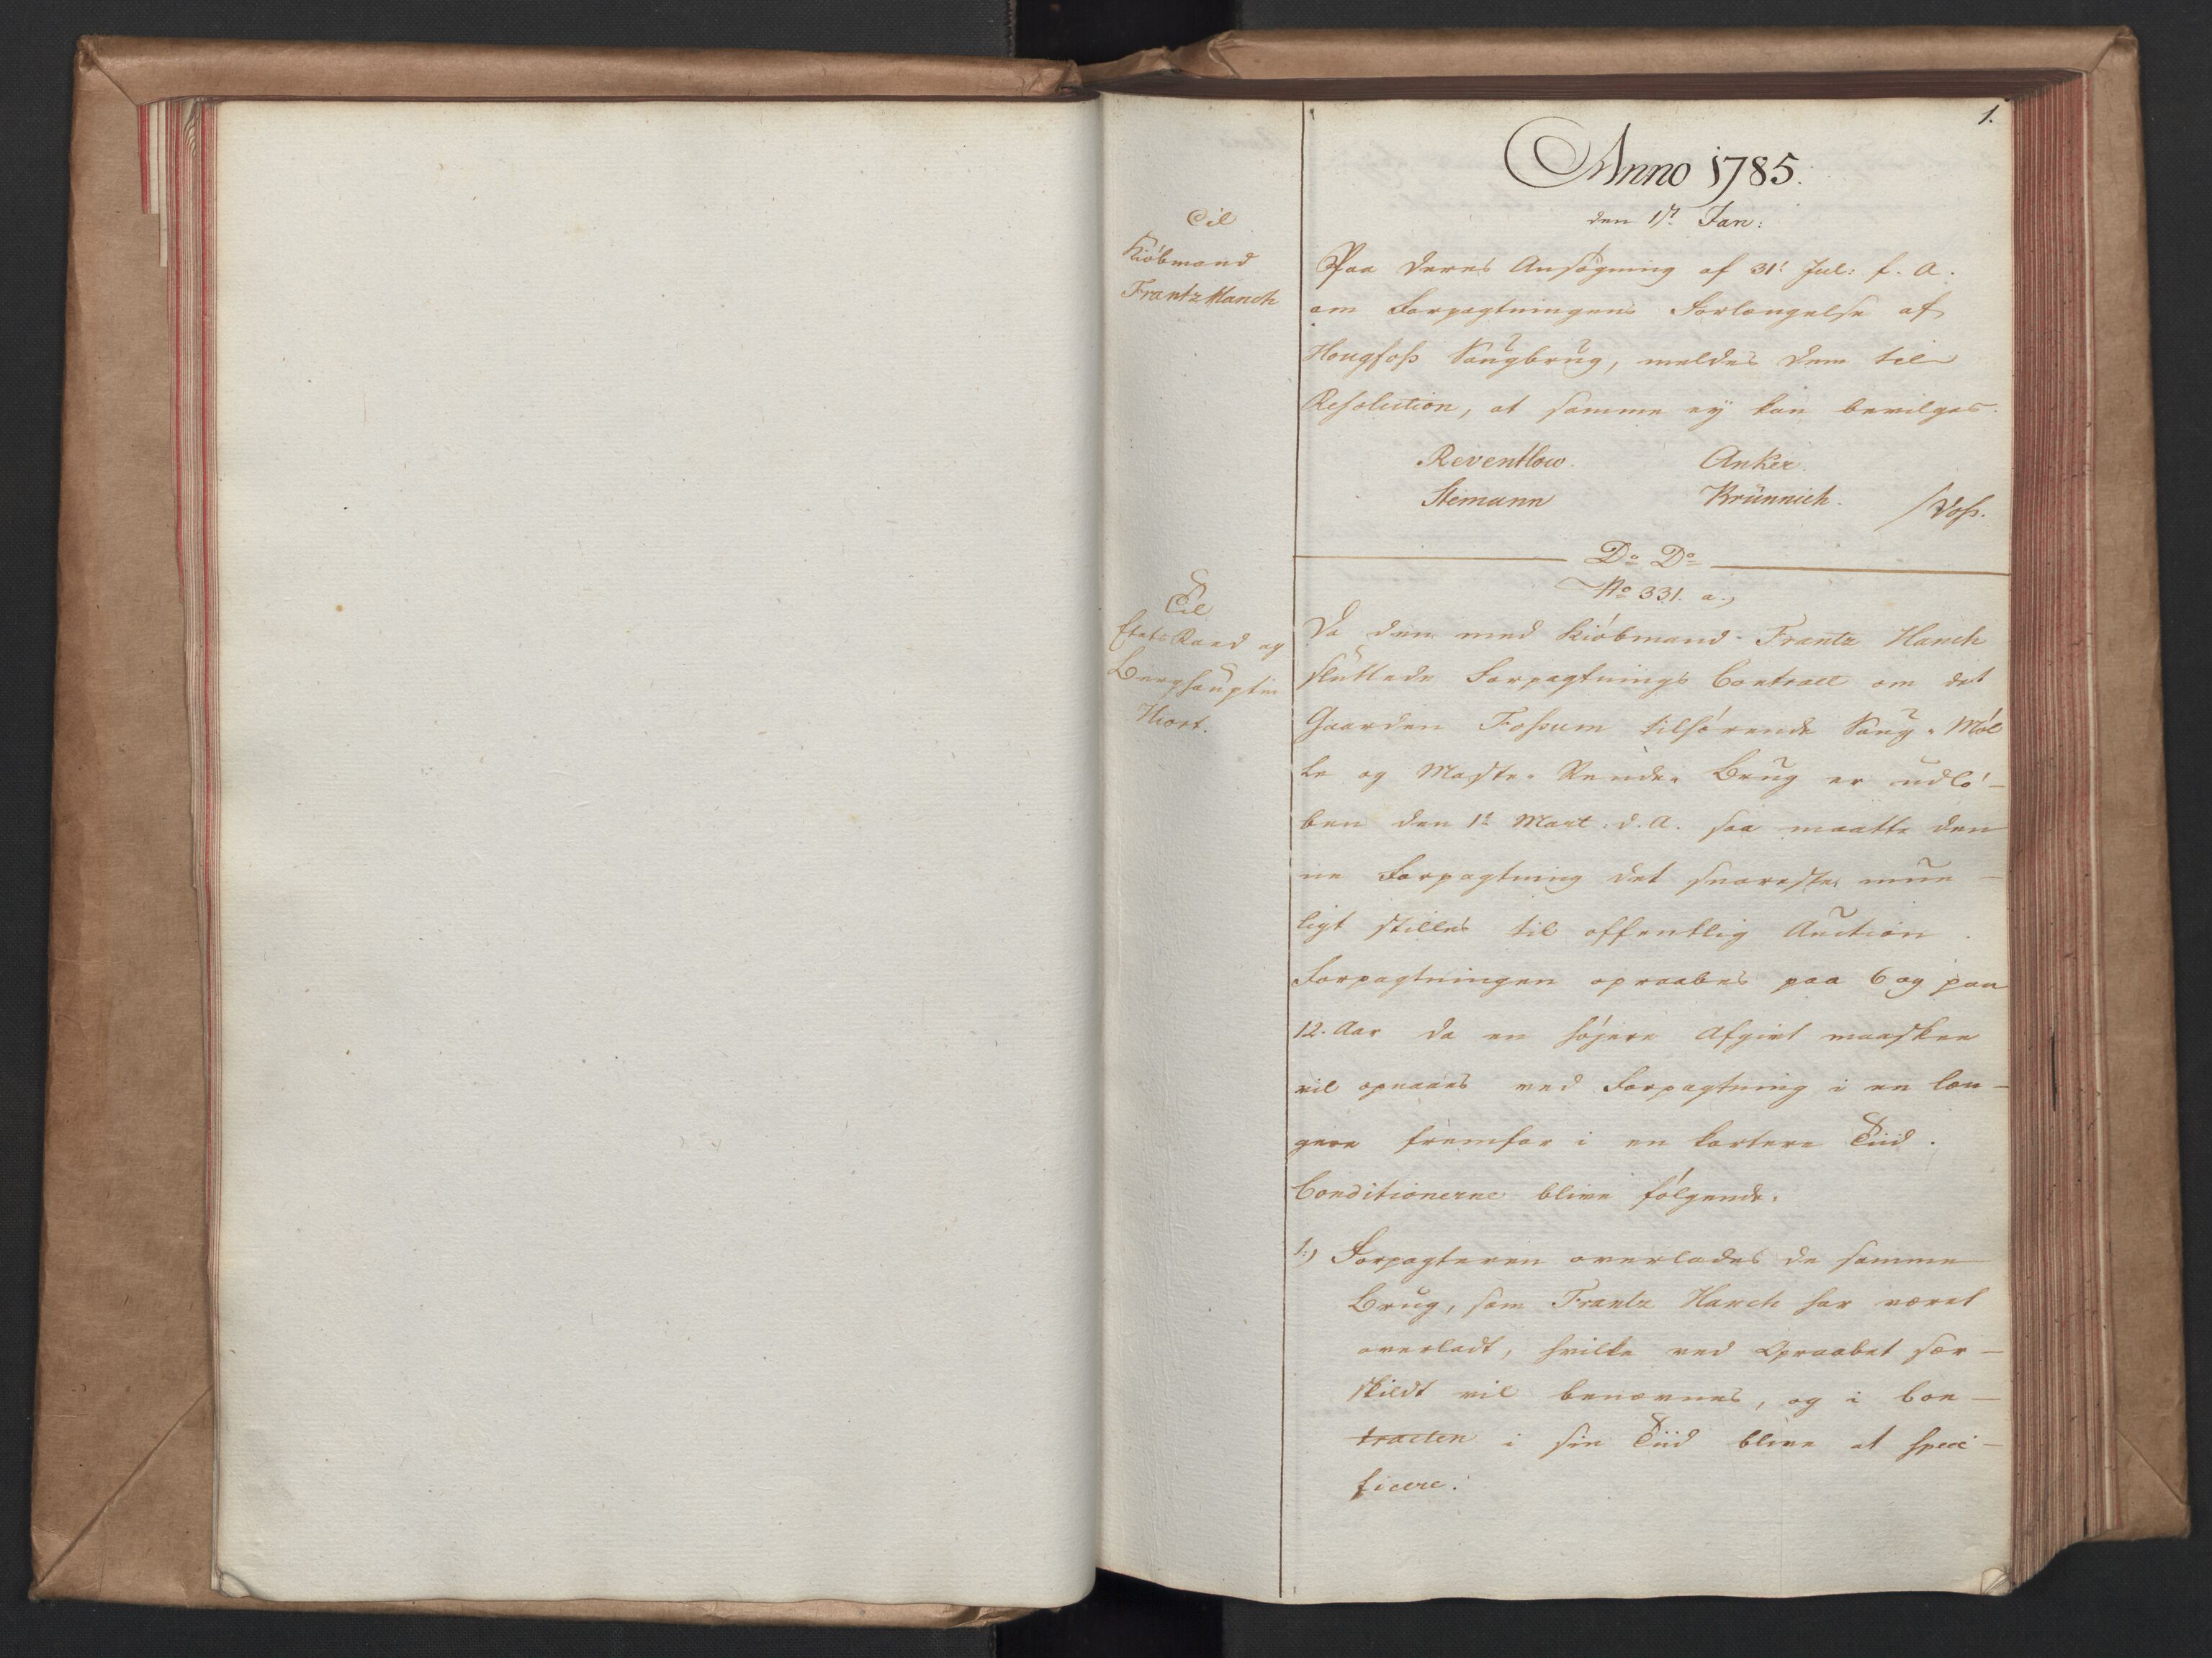 1.
Anno 1785.
den 1st Jan:
Til
Kiöbmand
Frantz Hanch
Paa Deres Ansögning af 31t Jul: f. A.
om Forpagtningens Forlængelse af
Hougfoss Saugbrug, meldes Dem til
Resolution, at samme ej kan bevilges.
Reventlow. Anker.
Stemann Brünnich. /Voss.
Do Do
No 331. a.,
Til
Etats Raad og
Berghauptm
Hiort.
Da den med Kiöbmand Frantz Hanch
sluttede Forpagtnings Contract om det
Gaarden Fossum tilhörende Saug- Möl
le og Maste- Rende- Brug er udlö-
ben den 1t Mart. d. A. saa maatte den
ne Forpagtning det snareste mue-
ligt stilles til offentlig Auction.
Forpagtningen opraabes paa 6 og paa
12. Aar da en höjere Afgivt maaskee
vil opnaaes ved Forpagtning i en læn-
gere fremfor i en kortere Tiid.
Conditionerne blive fölgende.
1., Forpagteren overlades de samme
Brug, som Frantz Hanch har været
overladt, hvilke ved Opraabet sær-
skildt vil benævnes, og i Con-
tracten i sin Tiid blive at speci-
ficere.